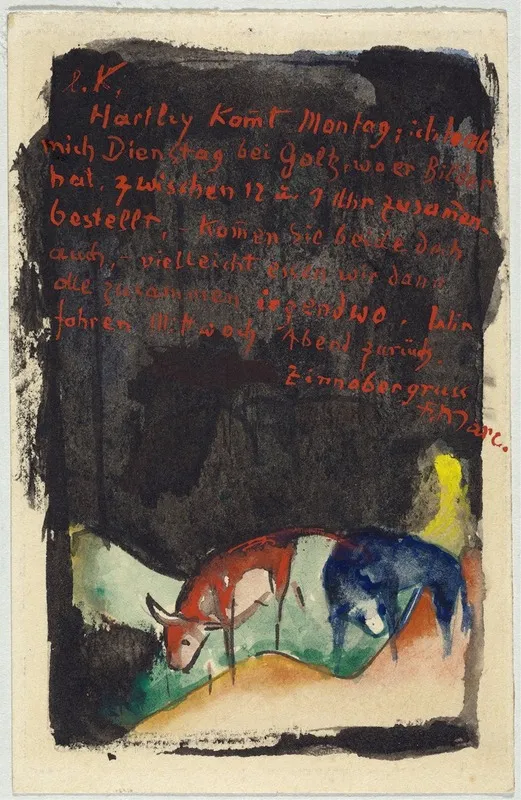 L. K.
Hartley komt Montag; ich hab
mich Dienstag bei Goltz, wo er Bilder
hat, zwischen 12 u. 1 Uhr zusamen
bestellt, - komen Sie beide doch
auch, - vielleicht essen wir dann
alle zusammen irgendwo. Wir
fahren Mittwoch Abend zurück.
Zinnobergruss
F. Marc.